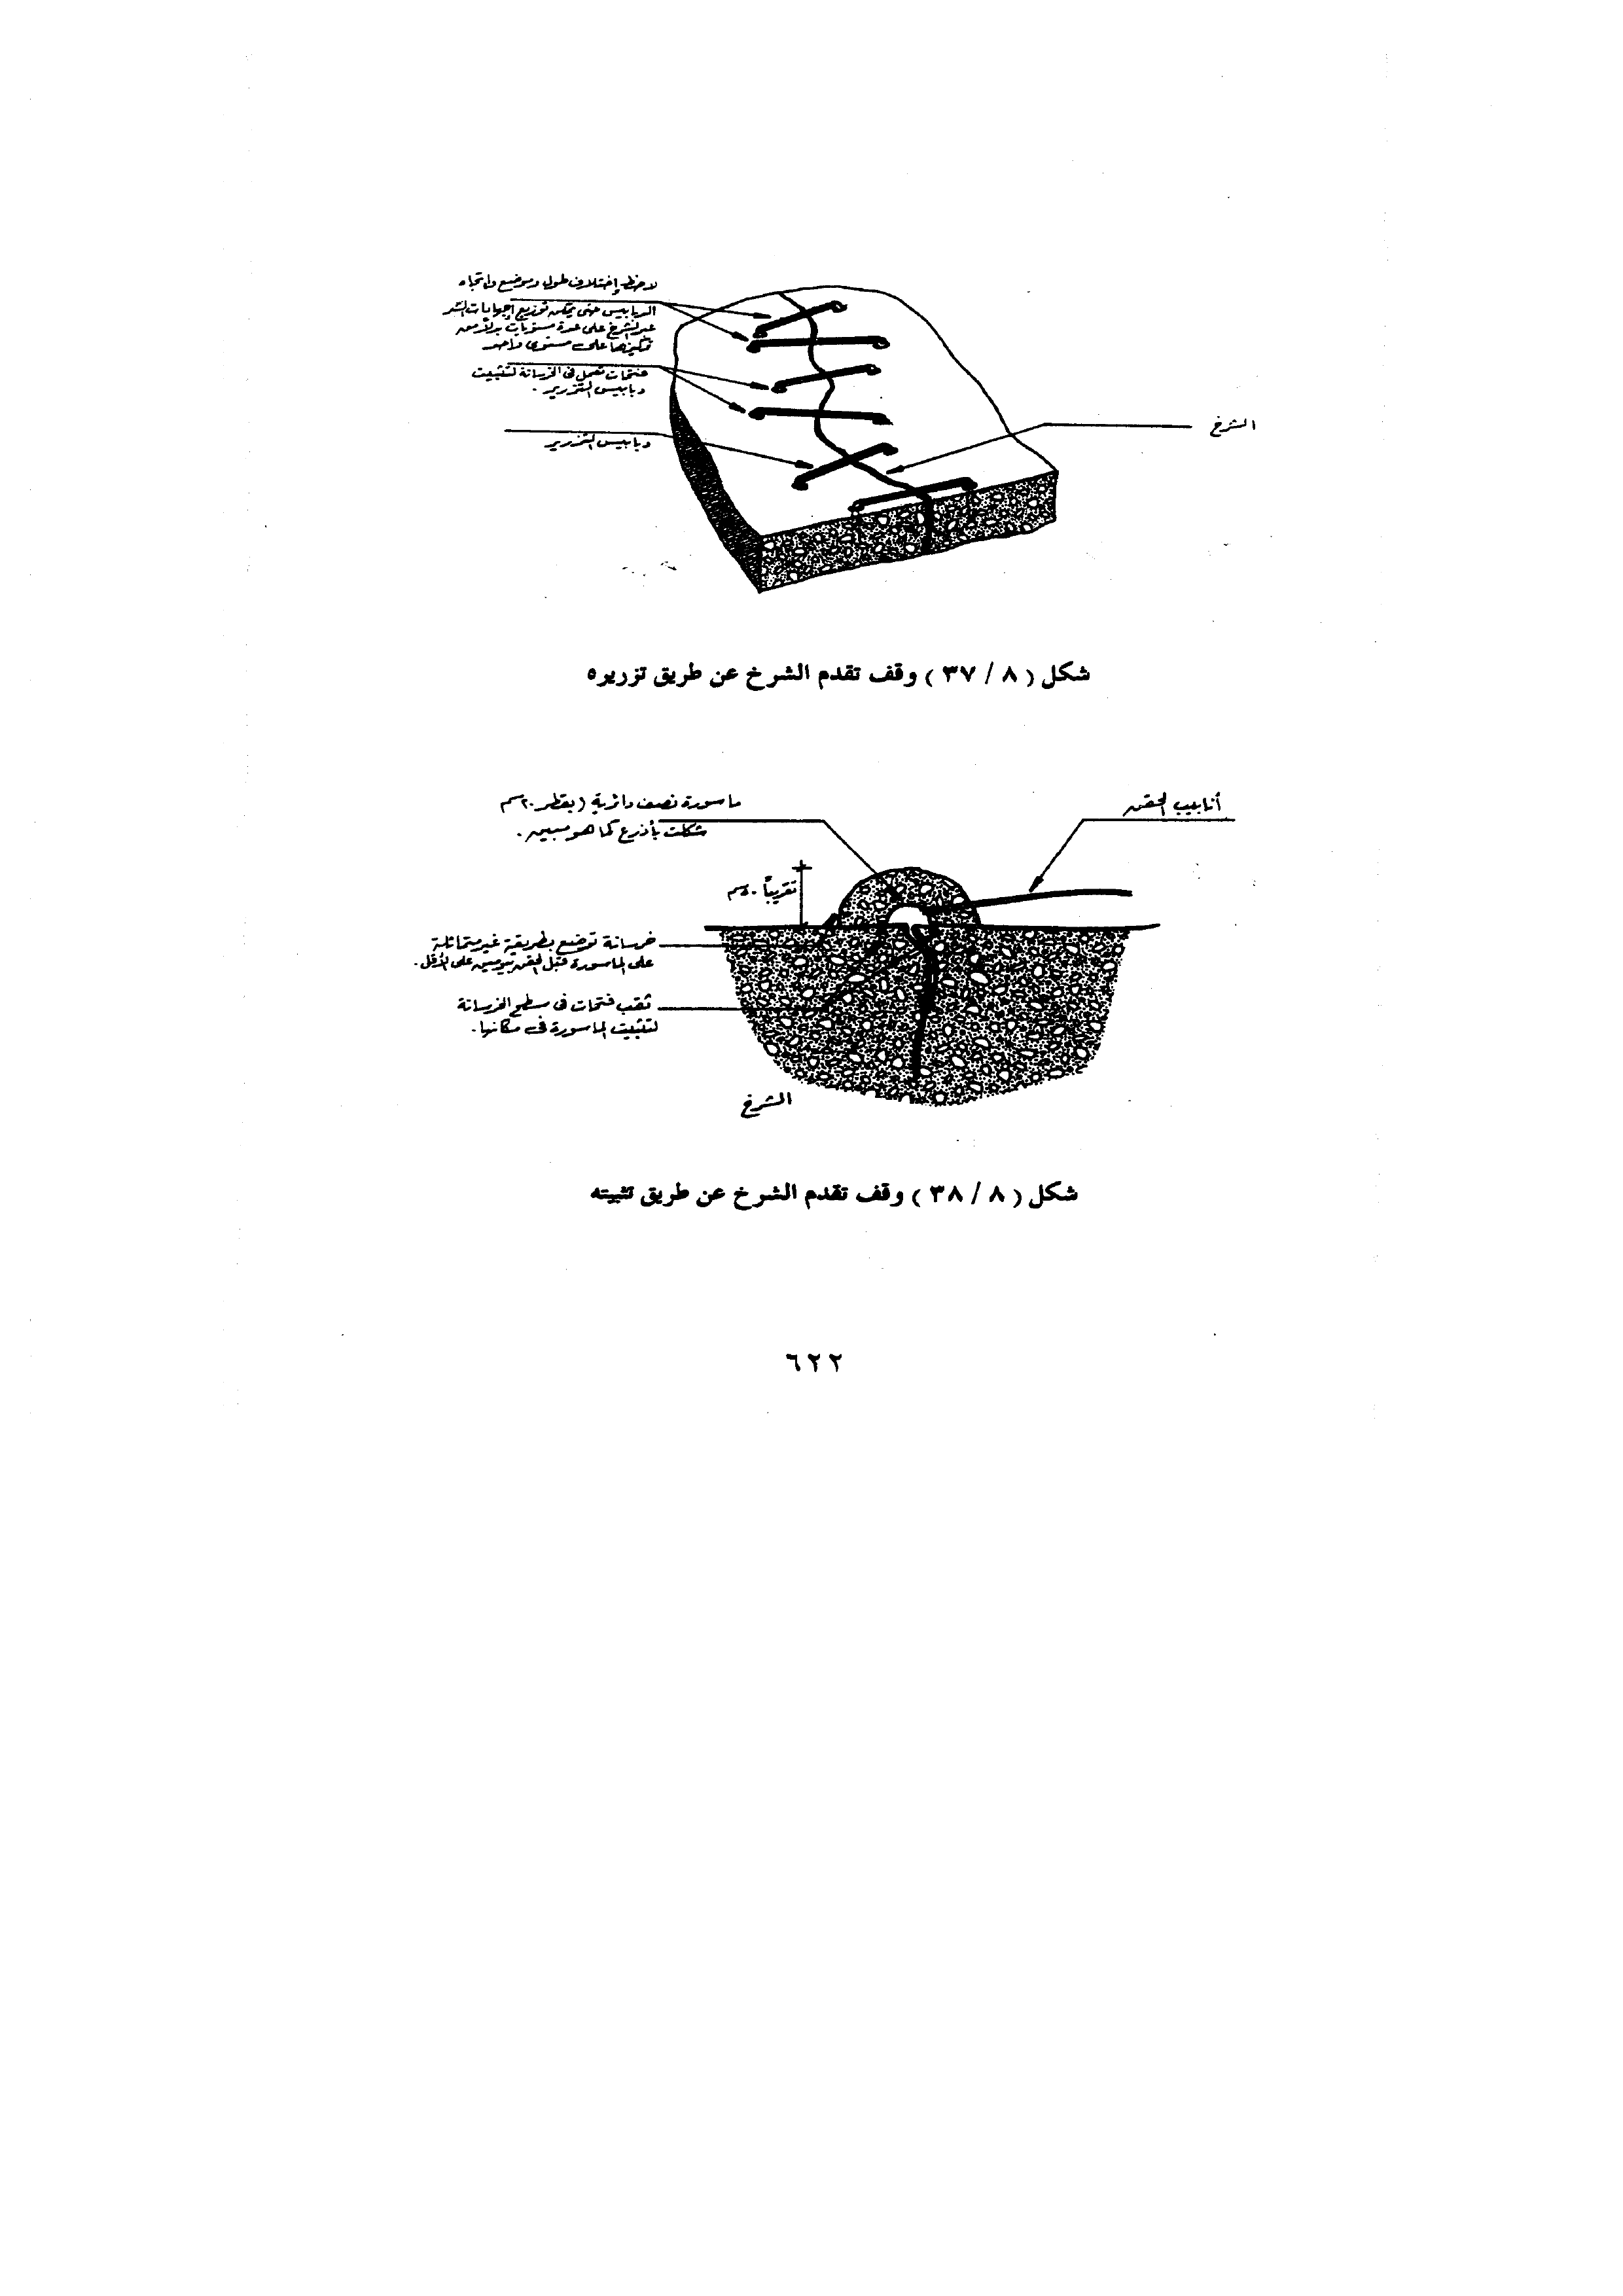 لاحظ إختلاف طول وموضع واتجاه
الدبابيس حتى يمكن توزيع إجهادات الشد
عبر الشرخ على عدة مستويات بدلاً من
تركيزها على مستوى واحد
فتحات تعمل فى الخرسانة لتثبيت
دبابيس التزرير .
دبابيس التزرير
الشرخ
شكل ( ٨ / ٣٧ ) وقف تقدم الشرخ عن طريق تزريره
أنابيب الحقن
ماسورة نصف دائرية ( بقطر ٢٠ سم
شكلت بأذرع كما هو مبين .
تقريباً ٥٠ سم
خرسانة توضع بطريقة غير متماثلة
على الماسورة قبل الحقن بيومين على الأقل .
ثقب فتحات فى سطح الخرسانة
لتثبيت الماسورة فى مكانها .
الشرخ
شكل ( ٨ / ٣٨ ) وقف تقدم الشرخ عن طريق تثبيته
٦٢٢